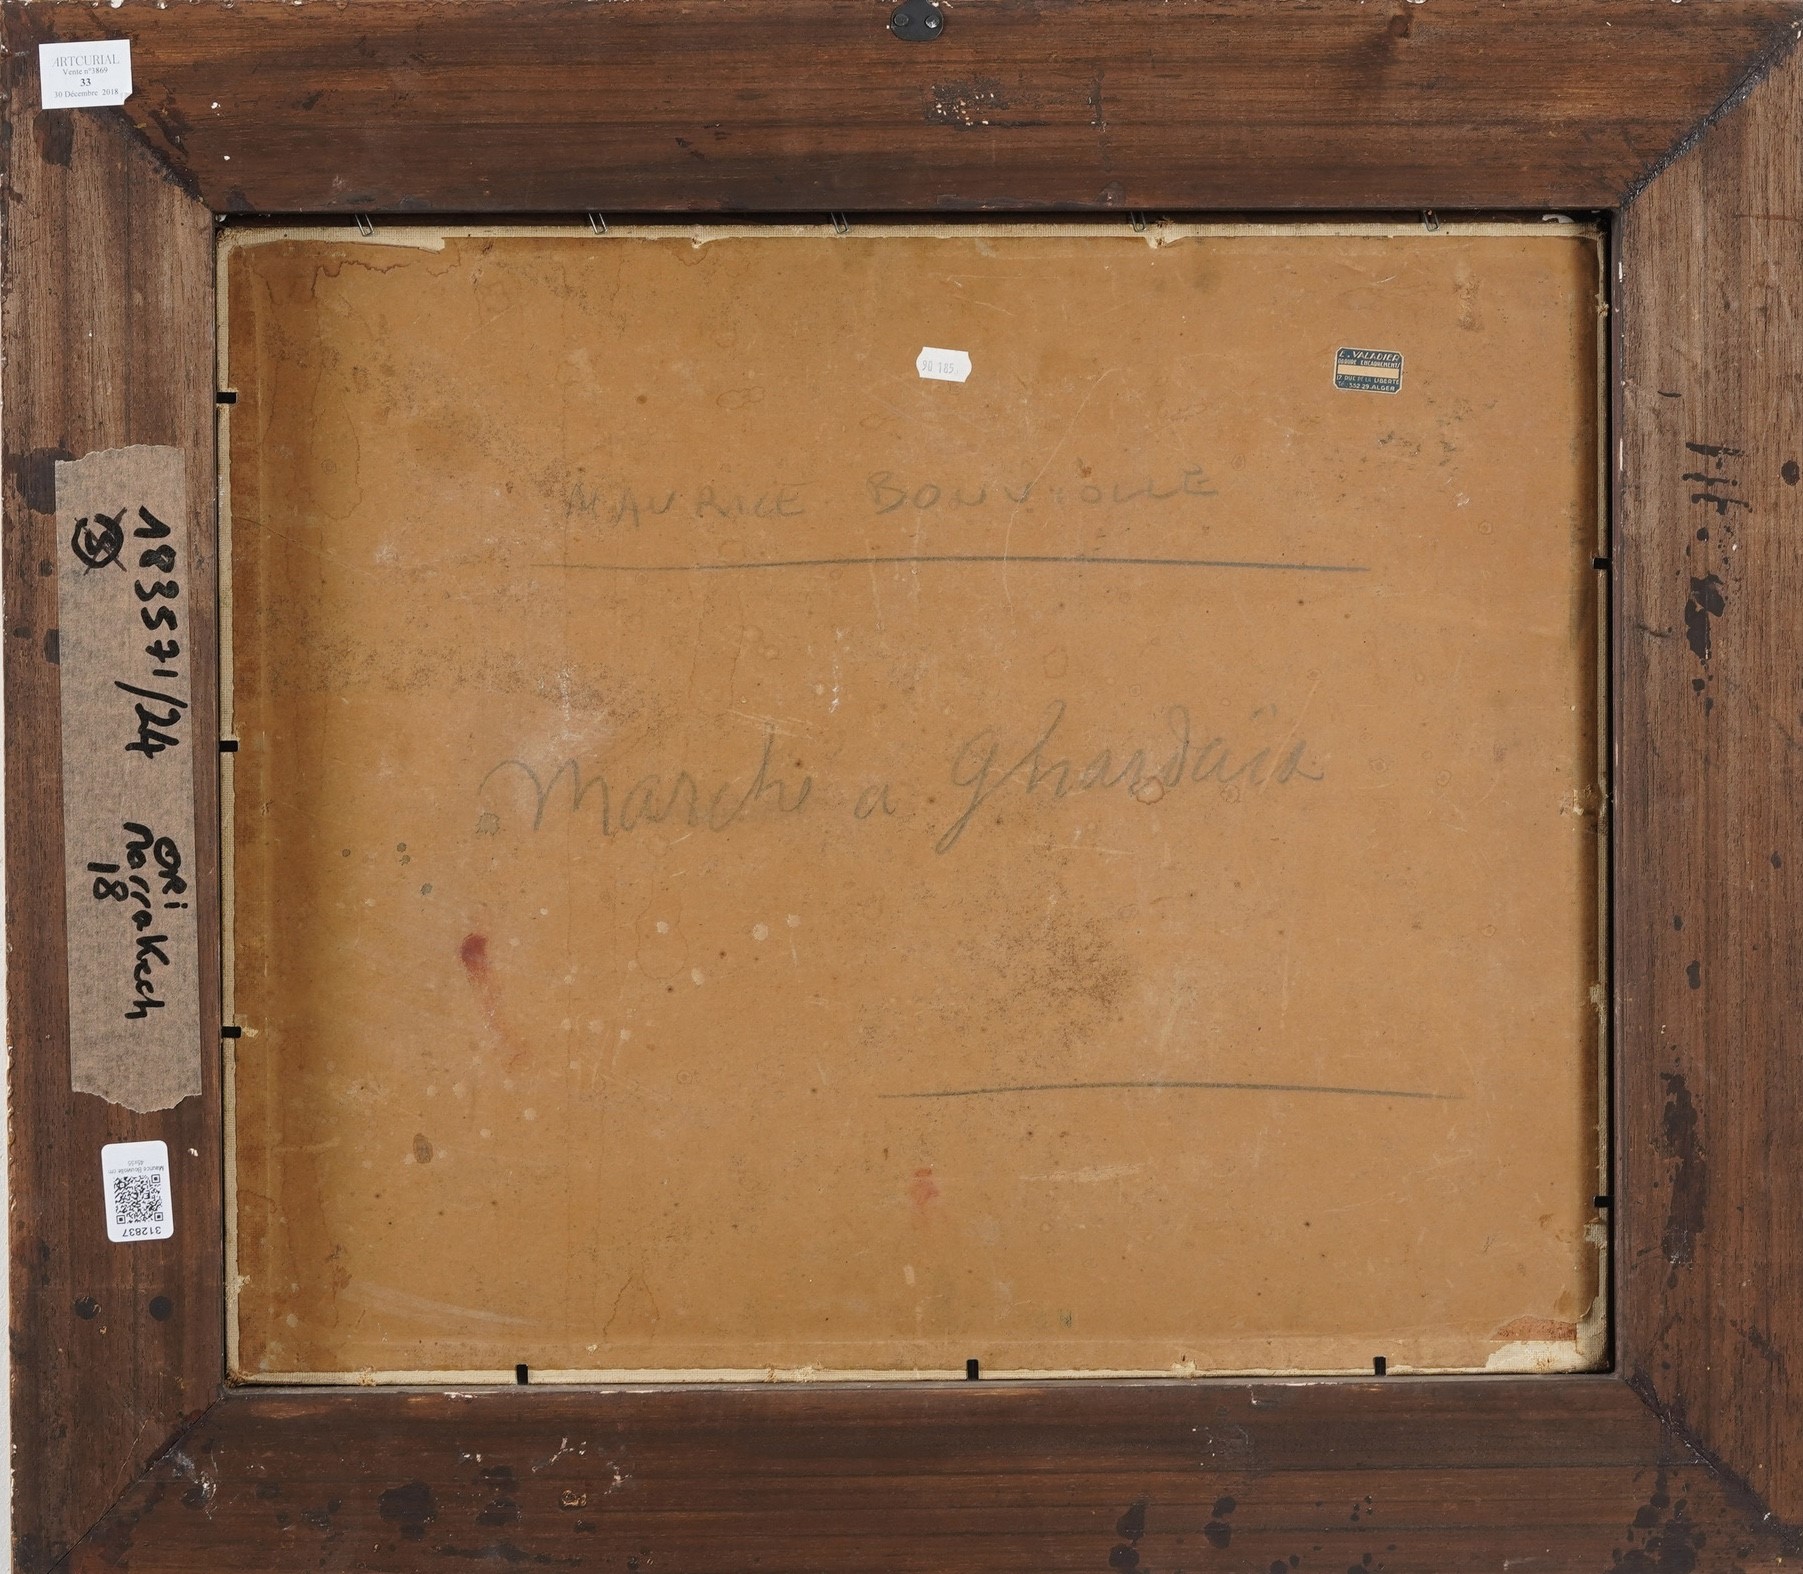 ARTCURIAL
Vente n°3869
33
30 Décembre 2018
90 185
L. VALADIER
DORURE ENCADREMENTS
17 RUE DE LA LIBERTÉ
352 29 ALGER
MAURICE BOUVIOLLE
Marché a Ghardaïa
183571/24
ORi
Marrakech
18
45x55
312837